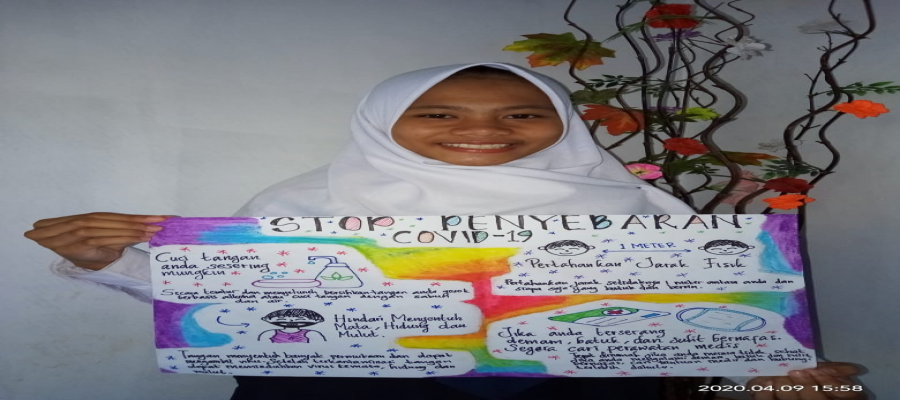 STOP PENYEBARAN
COVID-19
Cuci tangan
anda sesering
mungkin
Secara teratur dan menyeluruh, bersihkan tangan anda pakai
berbasis alkohol atau cuci tangan dengan sabun
dan air
1 METER
Pertahankan Jarak Fisik
Pertahankan jarak setidaknya 1 meter antara anda dan
siapa saja yang batuk dan bersin
Hindari Menyentuh
Mata, Hidung dan
Mulut.
Tangan menyentuh banyak permukaan dan dapat
virus. Setelah terkontaminasi tangan
dapat memindahkan virus ke mata, hidung dan
mulut.
Jika anda terserang
demam, batuk, dan sulit bernafas.
Segera cari perawatan medis
jika anda merasa tidak sehat
2020.04.09 15:58